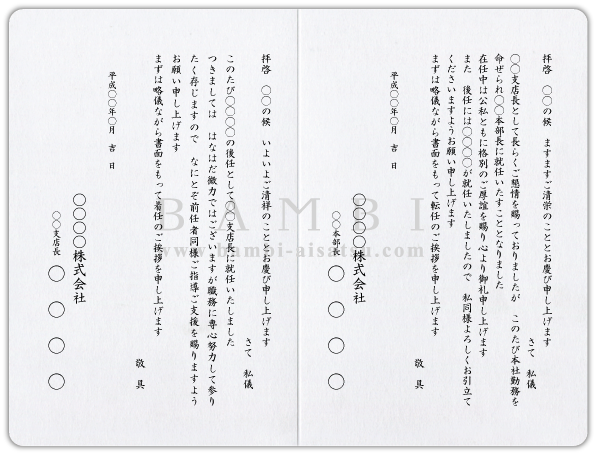 拝啓　〇〇の候　ますますご清栄のこととお慶び申し上げます
さて　私儀
〇〇支店長として長らくご懇情を賜っておりましたが　このたび本社勤務を
命ぜられ〇〇本部長に就任いたすこととなりました
在任中は公私ともに格別のご厚誼を賜り心より御礼申し上げます
また　後任には〇〇〇〇が就任いたしましたので　私同様よろしくお引立て
くださいますようお願い申し上げます
まずは略儀ながら書面をもって転任のご挨拶を申し上げます
敬　具
平成〇〇年〇月　吉　日
〇〇〇〇株式会社
〇〇本部長　〇　〇　〇　〇
拝啓　〇〇の候　いよいよご清祥のこととお慶び申し上げます
さて　私儀
このたび〇〇〇〇の後任として〇〇支店長に就任いたしました
つきましては　はなはだ微力ではございますが職務に専心努力して参り
たく存じますので　なにとぞ前任者同様ご指導ご支援を賜りますよう
お願い申し上げます
まずは略儀ながら書面をもって着任のご挨拶を申し上げます
敬　具
平成〇〇年〇月　吉　日
〇〇〇〇株式会社
〇〇支店長　〇　〇　〇　〇
BAMBI
www.bambi-aisatsu.com